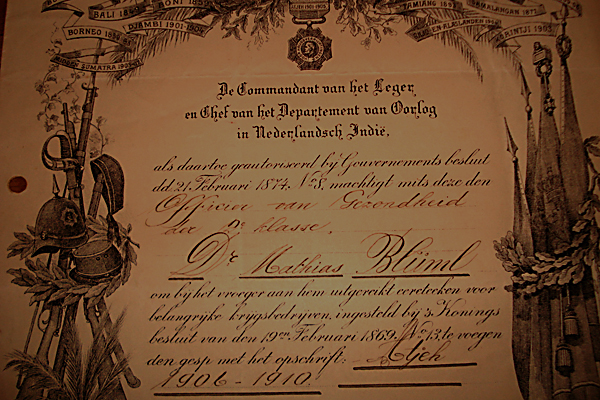 BALI
BONI
BORNEO
DJAMBI 1901-190
SUMATRA
TAMIANG
KORINTJI 1903
De Commandant van het Leger
en Chef van het Departement van Oorlog
in Nederlandsch Indië,
als daartoe geautoriseerd bij Gouvernements besluit
dd. 21. Februari 1874. No 8, machtigt mits deze den
Officier van Gezondheid
der 2e klasse,
Dr Mathias Blüml
om bij het vroeger aan hem uitgereikt eereteeken voor
belangrijke krijgsbedrijven, ingesteld bij 's Konings
besluit van den 19en Februari 1869. No 13, te voegen
den gesp met het opschrift: Atjeh
1906-1910.